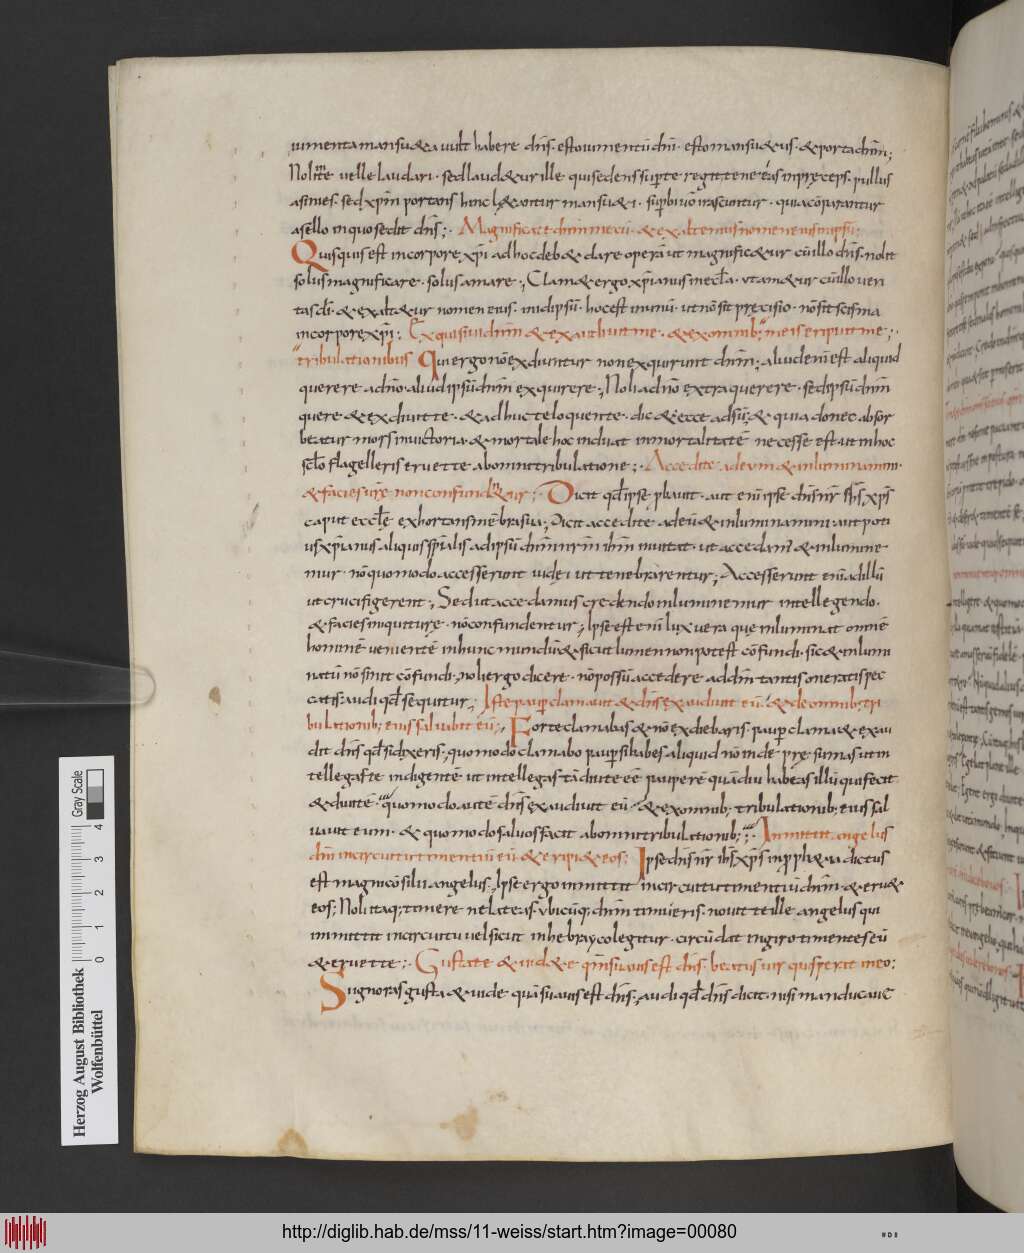 iumenta mansu&a uult habere dn̄s· esto iumentū dn̄i· esto mansu&us· & porta dn̄m;
Nolite uelle laudari· sed laud&ur ille qui sedens sup te regit te ne eas in pręceps· pullus
asini es· sed xp̄m portans hinc l&antur mansu&i· supbi uō irascuntur· quia cōparantur
asello in quo sedit dn̄s;· Magnificate dn̄m mecū· & exaltemus nomen eius in ipsū;
Quisquis est in corpore xp̄i ad hoc deb& dare operā ut magnific&ur cū illo dn̄s· nolit
solus magnificare· solus amare; Clam& ergo xp̄ianus in eccl̄a· ut am&ur cū illo ueri
tas dī· & exalt&ur nomen eius· in idipsū· hoc est in unū· ut nō sit pręcisio· nō sit scisma
in corpore xp̄i;· Exquisiui dn̄m & exaudiuit me· & ex omnib; meis eripuit me;·
tribulationibus Qui ergo nō exdiuntur non exquirunt dn̄m; aliud eni est aliquid
querere a dn̄o aliud ipsū dn̄m exquirere; Noli a dn̄o extra querere· sed ipsū dn̄m
quere & exdiuit te· & adhuc te loquente· dic& ecce adsū;· & quia donec absor
beatur mors in uictoria· & mortale hoc induat inmortalitatē necesse est ut in hoc
scl̄o flagelleris eruet te ab omni tribulatione;· Accedite ad eum & inluminamini·
& facies urę non confund&ur;· Dicit qd̄ ipse pbauit· aut eni ipse dn̄s nr̄ ih̄s xp̄s
caput eccl̄ę exhortans mēbra sua; dicit accedite ad eū & inluminamini· aut poti
us xp̄ianus aliquis sp̄ialis ad ipsū dn̄m nr̄m ih̄m inuitat· ut accedam & inlumine
mur· nō quomodo accesserunt iudęi ut tenebrarentur; Accesserunt eni ad illū
ut crucifigerent; Sed ut accedamus credendo inluminemur intellegendo·
& facies inquit urę· nō confundentur; Ipse est eni lux uera que inluminat omnē
hominē uenientē in hunc mundū & sicut lumen non potest cōfundi· sic & inlumi
natū nō sinit cōfundi; noli ergo dicere· nō possū accedere ad dn̄m tantis onerati spec
catis· audi qd̄ sequitur; Iste paup clamauit & dn̄s exaudiuit eū· & de omnib; tri
bulationib; eius saluabit eū;· Forte clamabas & nō exdiebaris· paup clama & exau
dit dn̄s qd̄ si dixeris· quomodo clamabo paup si habes aliquid nō inde pręsumas ut in
tellegas te indigentē ut intellegas tādiute eē pauperē quādiu habeas illū qui fecit
& diuitē· quomodo autē dn̄s exaudiuit eū· & ex omnib; tribulationib; eius sal
uauit eum· & quomodo saluos facit ab omni tribulationib;· Inmittit angelus
dn̄i in circuitu timentiū eū & eripi& eos; Ipse dn̄s nr̄ ih̄s xp̄s in pph&ia dictus
est magni cōsilii angelus; Ipse ergo inmittit in circuitu timentiū dn̄m & eru&
eos; Noli itaq; timere ne lateas· Vbicūq; dn̄m timueris· nouit te ille angelus qui
inmittit in circuitu uel sicut in hebrayco legitur· circūdat in giro timentes eū
& eruet te;· Gustate & uid&e qm̄ suauis est dn̄s· beatus uir qui sperat in eo;
Si ignoras gusta & uide quā suauis est dn̄s; audi qd̄ dn̄s dicit· nisi manducaue
Herzog August Bibliothek
Wolfenbüttel
0 1 2 3 4
Gray Scale
http://diglib.hab.de/mss/11-weiss/start.htm?image=00080